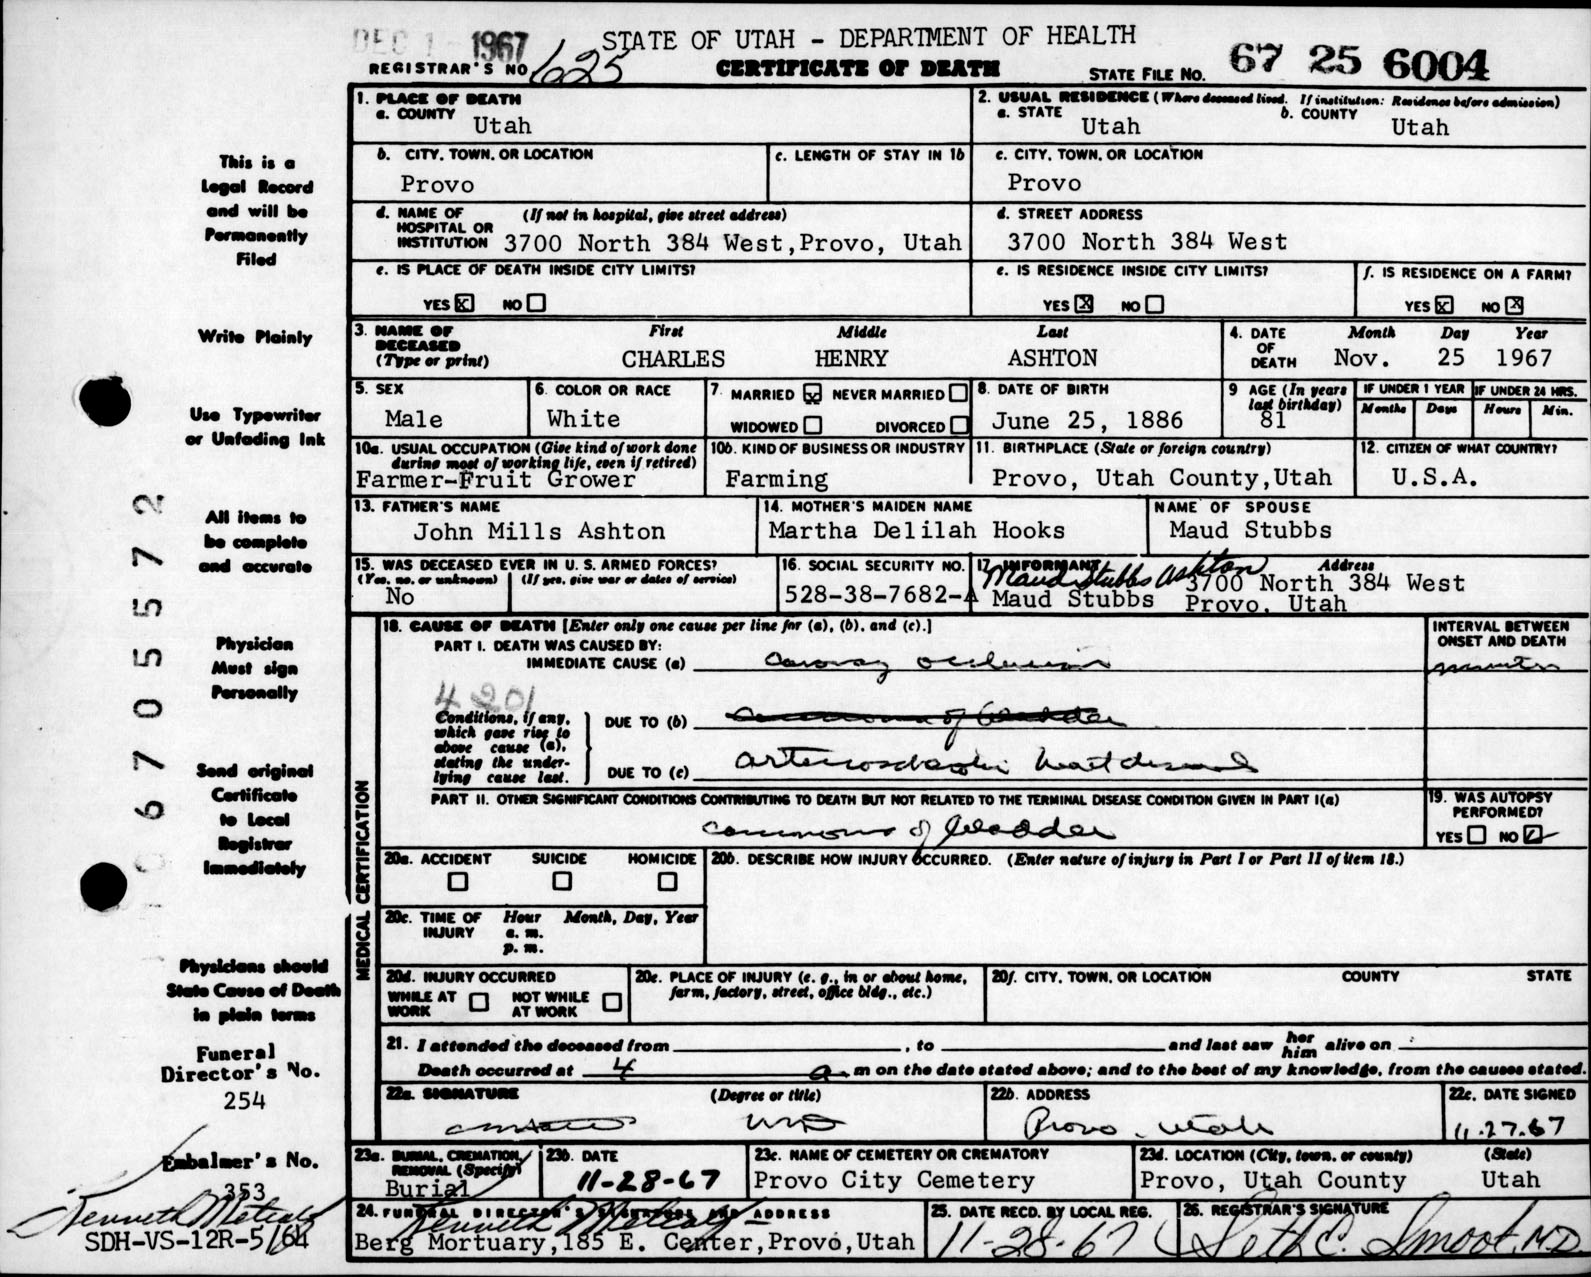 DEC 1 1967
STATE OF UTAH - DEPARTMENT OF HEALTH
REGISTRAR'S NO 625
CERTIFICATE OF DEATH
STATE FILE NO. 67 25 6004
This is a
Legal Record
and will be
Permanently
Filed
Write Plainly
Use Typewriter
or Unfading Ink
All items to
be complete
and accurate
Physician
Must sign
Personally
Send original
Certificate
to Local
Registrar
Immediately
Physicians should
State Cause of Death
in plain terms
Funeral
Director's No.
254
Embalmer's No.
353
Kenneth Metcalf
SDH-VS-12R-5/64
670557 2
1. PLACE OF DEATH
a. COUNTY
Utah
2. USUAL RESIDENCE (Where deceased lived. If institution: Residence before admission)
a. STATE
Utah
b. COUNTY
Utah
b. CITY, TOWN, OR LOCATION
Provo
c. LENGTH OF STAY IN 1b
c. CITY, TOWN, OR LOCATION
Provo
d. NAME OF (If not in hospital, give street address)
HOSPITAL OR
INSTITUTION 3700 North 384 West,Provo, Utah
d. STREET ADDRESS
3700 North 384 West
e. IS PLACE OF DEATH INSIDE CITY LIMITS?
YES X NO
e. IS RESIDENCE INSIDE CITY LIMITS?
YES X NO
f. IS RESIDENCE ON A FARM?
YES X NO X
3. NAME OF
DECEASED
(Type or print)
First Middle Last
CHARLES HENRY ASHTON
4. DATE
OF
DEATH
Month Day Year
Nov. 25 1967
5. SEX
Male
6. COLOR OR RACE
White
7. MARRIED X NEVER MARRIED
WIDOWED DIVORCED
8. DATE OF BIRTH
June 25, 1886
9 AGE (In years
last birthday)
81
IF UNDER 1 YEAR
Months Days
IF UNDER 24 HRS.
Hours Min.
10a. USUAL OCCUPATION (Give kind of work done
during most of working life, even if retired)
Farmer-Fruit Grower
10b. KIND OF BUSINESS OR INDUSTRY
Farming
11. BIRTHPLACE (State or foreign country)
Provo, Utah County,Utah
12. CITIZEN OF WHAT COUNTRY?
U.S.A.
13. FATHER'S NAME
John Mills Ashton
14. MOTHER'S MAIDEN NAME
Martha Delilah Hooks
NAME OF SPOUSE
Maud Stubbs
15. WAS DECEASED EVER IN U. S. ARMED FORCES?
(Yes, no, or unknown) (If yes, give war or dates of service)
No
16. SOCIAL SECURITY NO.
528-38-7682-A
17 INFORMANT Address
Maud Stubbs Ashton
3700 North 384 West
Maud Stubbs Provo, Utah
MEDICAL CERTIFICATION
18. CAUSE OF DEATH [Enter only one cause per line for (a), (b), and (c).]
PART I. DEATH WAS CAUSED BY:
IMMEDIATE CAUSE (a) coronary occlusion
INTERVAL BETWEEN
ONSET AND DEATH
minutes
4201
Conditions, if any,
which gave rise to
above cause (a),
stating the under-
lying cause last.
DUE TO (b) carcinoma of bladder
DUE TO (c) arteriosclerotic heart disease
PART II. OTHER SIGNIFICANT CONDITIONS CONTRIBUTING TO DEATH BUT NOT RELATED TO THE TERMINAL DISEASE CONDITION GIVEN IN PART I(a)
carcinoma of bladder
19. WAS AUTOPSY
PERFORMED?
YES NO
20a. ACCIDENT SUICIDE HOMICIDE
20b. DESCRIBE HOW INJURY OCCURRED. (Enter nature of injury in Part I or Part II of item 18.)
20c. TIME OF Hour Month, Day, Year
INJURY a. m.
p. m.
20d. INJURY OCCURRED
WHILE AT NOT WHILE
WORK AT WORK
20e. PLACE OF INJURY (e. g., in or about home,
farm, factory, street, office bldg., etc.)
20f. CITY, TOWN, OR LOCATION COUNTY STATE
21. I attended the deceased from , to and last saw her him alive on
Death occurred at 4 a. m on the date stated above; and to the best of my knowledge, from the causes stated.
22a. SIGNATURE (Degree or title)
MD
22b. ADDRESS
Provo, Utah
22c. DATE SIGNED
11.27.67
23a. BURIAL, CREMATION,
REMOVAL (Specify)
Burial
23b. DATE
11-28-67
23c. NAME OF CEMETERY OR CREMATORY
Provo City Cemetery
23d. LOCATION (City, town, or county) (State)
Provo, Utah County Utah
24. FUNERAL DIRECTOR'S SIGNATURE AND ADDRESS
Kenneth Metcalf
Berg Mortuary,185 E. Center,Provo,Utah
25. DATE RECD. BY LOCAL REG.
11-28-67
26. REGISTRAR'S SIGNATURE
Seth E. Smoot, M.D.